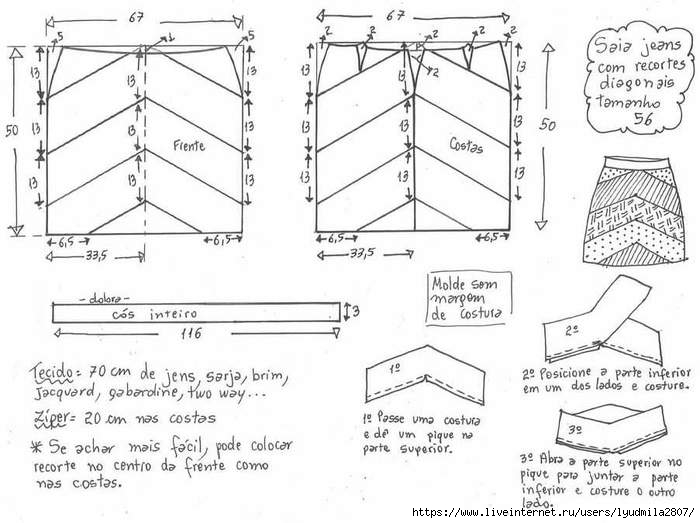 67
5
1
5
13
13
13
50
13
13
13
Frente
13
13
13
6,5
6,5
33,5
67
2
2
2
P
2
2
2
13
13
13
50
13
13
13
Costas
13
13
13
6,5
6,5
33,5
Saia jeans
com recortes
diagonais
tamanho
56
- dobra -
cós inteiro
3
116
Molde sem
margem
de costura
Tecido = 70 cm de jens, sarja, brim,
Jacquard, gabardine, two way...
Zíper = 20 cm nas costas
* Se achar mais fácil, pode colocar
recorte no centro da frente como
nas costas.
1º
1º Passe uma costura
e dê um pique na
parte superior.
2º
2º Posicione a parte inferior
em um dos lados e costure.
3º
3º Abra a parte superior no
pique para juntar a parte
inferior e costure o outro
lado.
https://www.liveinternet.ru/users/lyudmila2807/